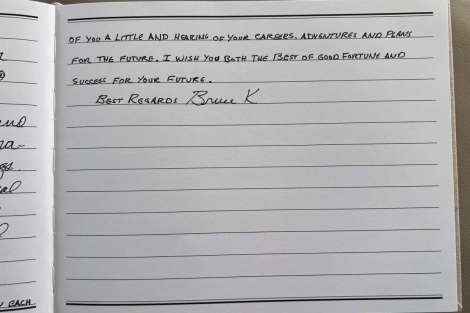 OF YOU A LITTLE AND HEARING OF YOUR CAREERS, ADVENTURES AND PLANS
FOR THE FUTURE. I WISH YOU BOTH THE BEST OF GOOD FORTUNE AND
SUCCESS FOR YOUR FUTURE.
BEST REGARDS Bruce K
EACH